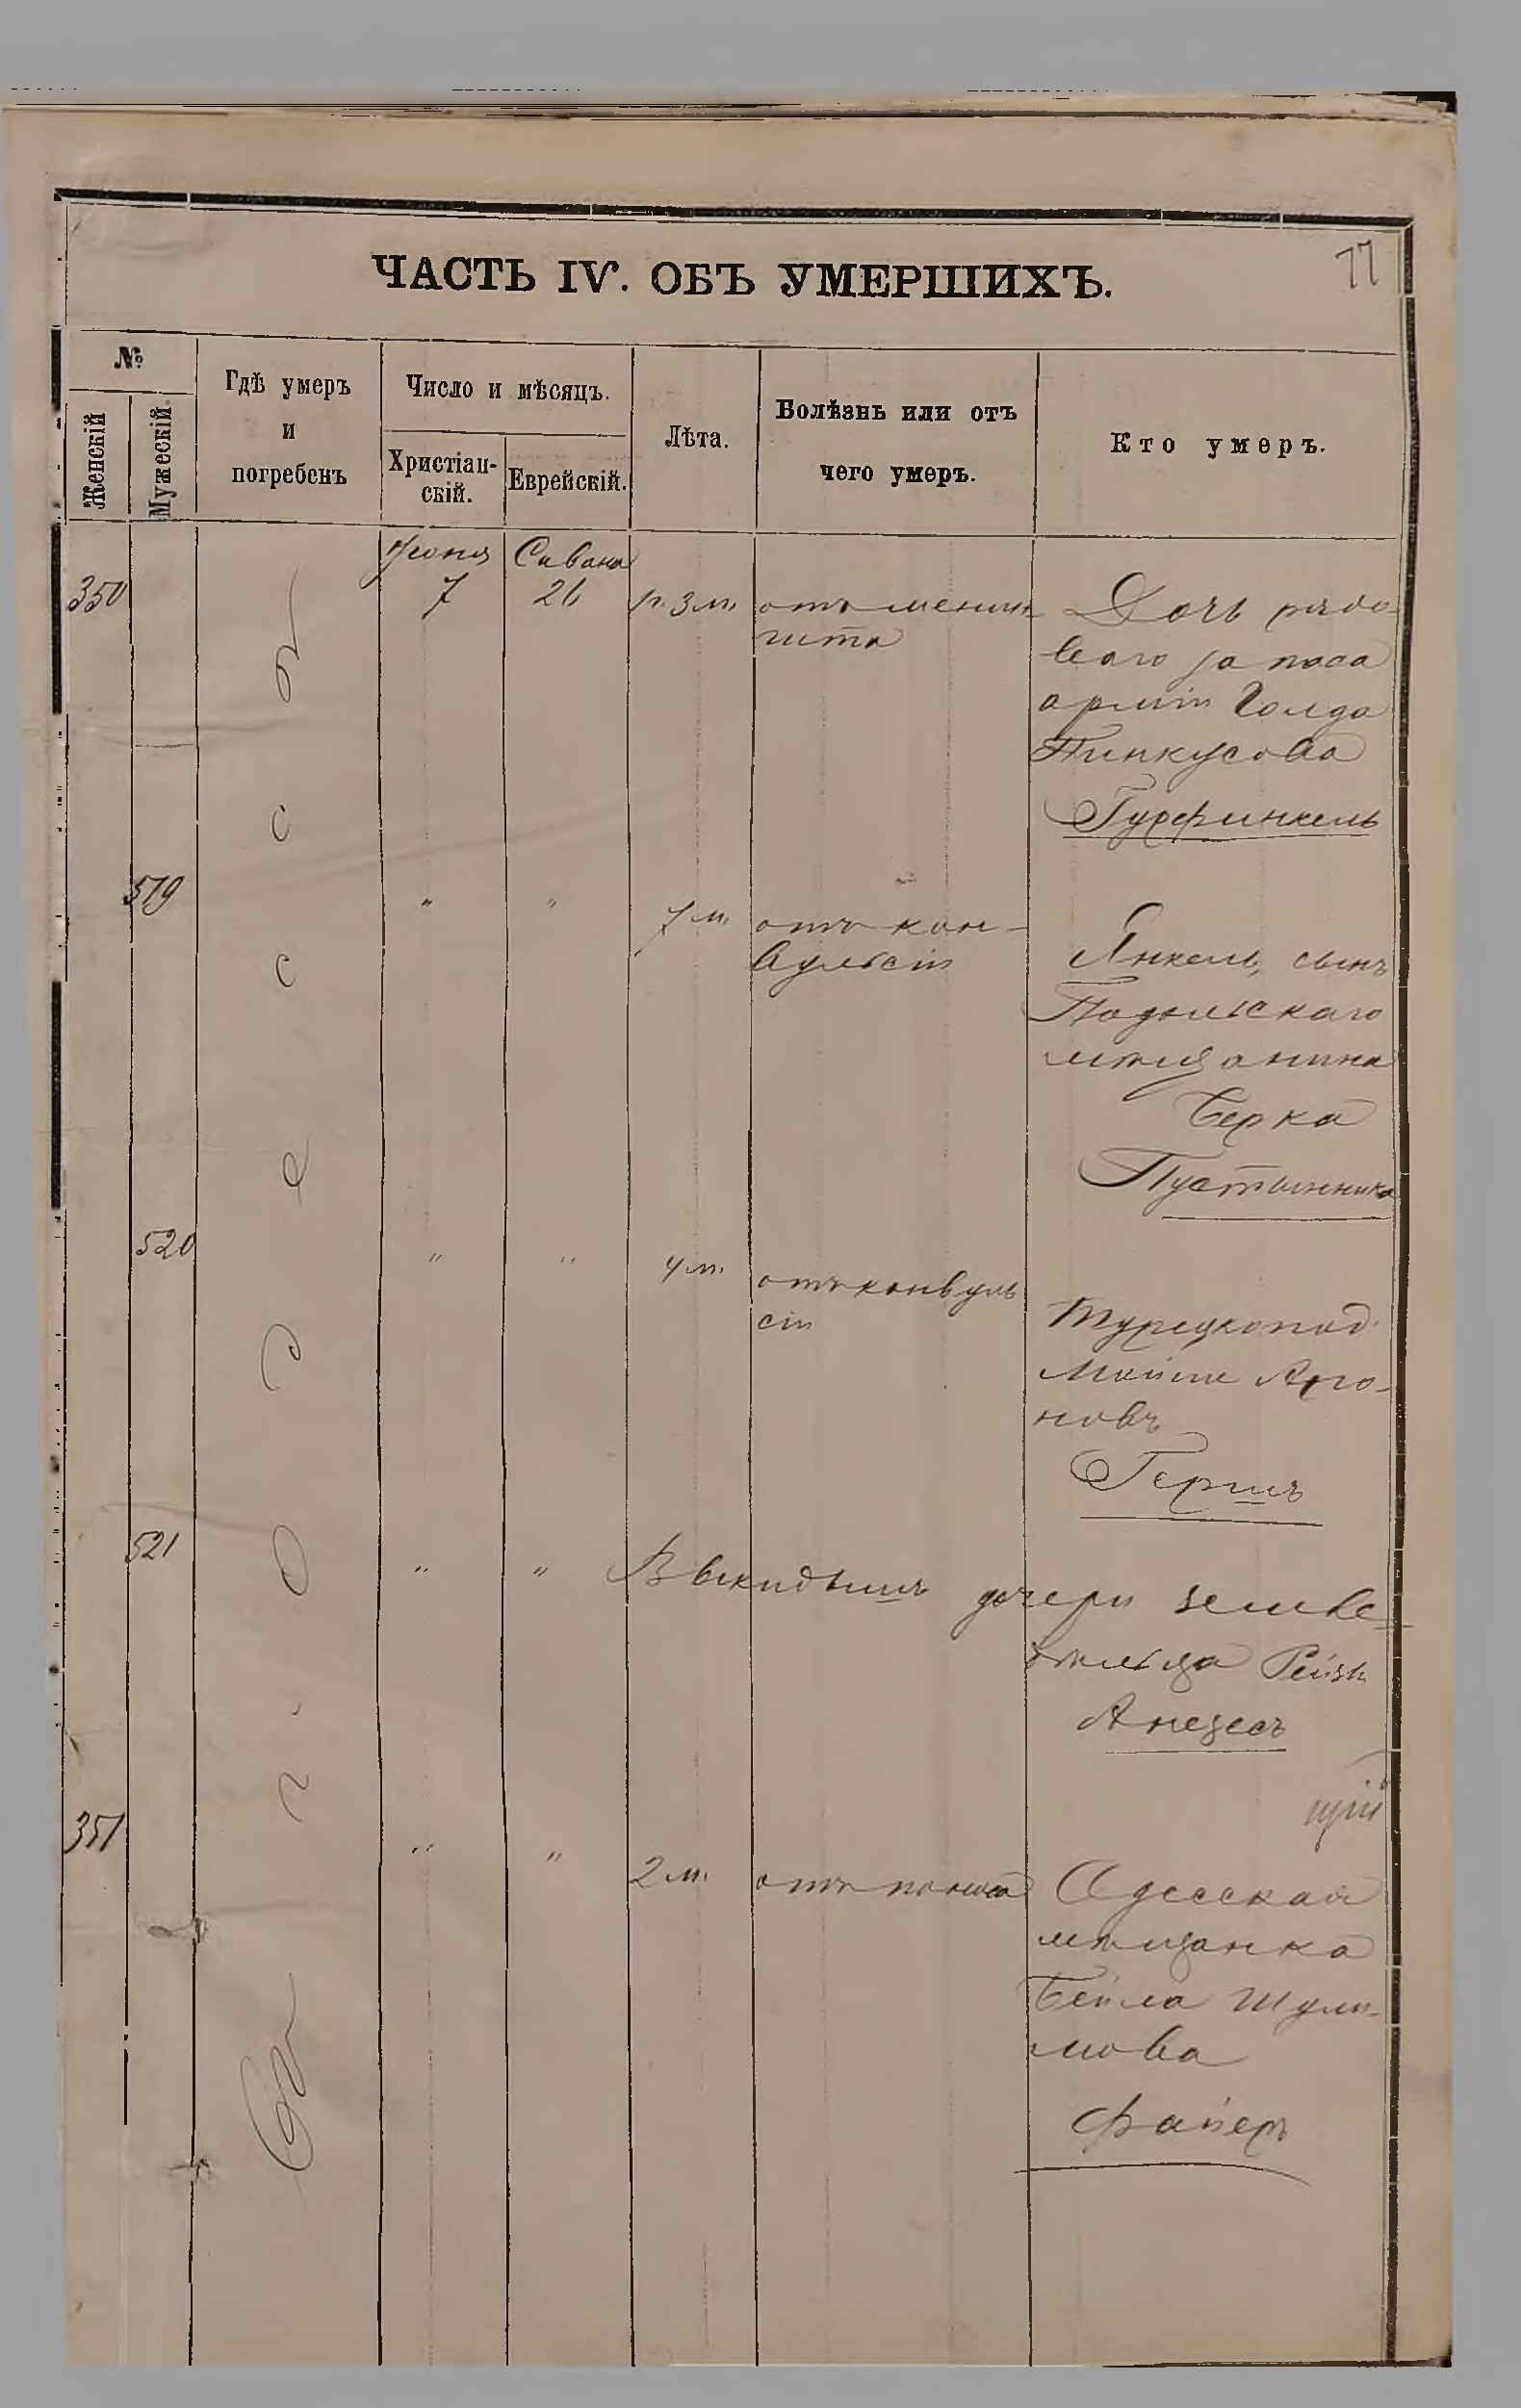 ЧАСТЬ IV. ОБЪ УМЕРШИХЪ.
77
№
Женскій
Мужескій
Гдѣ умеръ
и
погребенъ
Число и мѣсяцъ.
Христіан-
скій.
Еврейскій.
Лѣта.
Болѣзнь или отъ
чего умеръ.
Кто умеръ.
въ г. Одессѣ
Іюня
Сивана
350
7
26
1г. 3 м.
отъ менин-
гита
Дочь рядо-
ваго запаса
арміи Голда
Пинкусова
Гурфинкель
519
"
"
7 м.
отъ кон-
вульсіи
Янкель, сынъ
Подольскаго
мѣщанина
Берка
Пустынника
520
"
"
4 м.
отъ конвуль
сіи
Турецкопод.
Мойше Аро-
новъ
Гершъ
521
"
"
Выкидышъ дочери земле-
дѣльца Рейзи
351
"
"
2 м.
отъ поноса
Одесская
мѣщанка
Бейла Шули-
мова
Файеръ